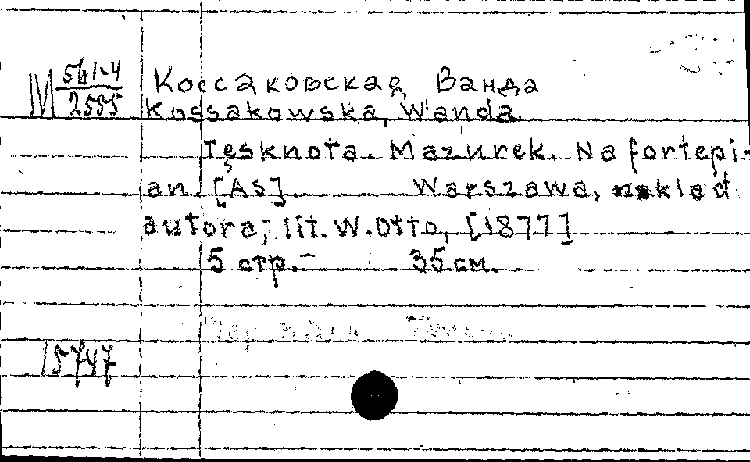 М 561-4
2585
Коссаковская, Ванда
Kossakowska, Wanda.
Tęsknota. Mazurek. Na fortepi-
an. [As]. Warszawa, nakład
autora; lit. W. Otto, [1877]
5 стр.- 35 см.
15747